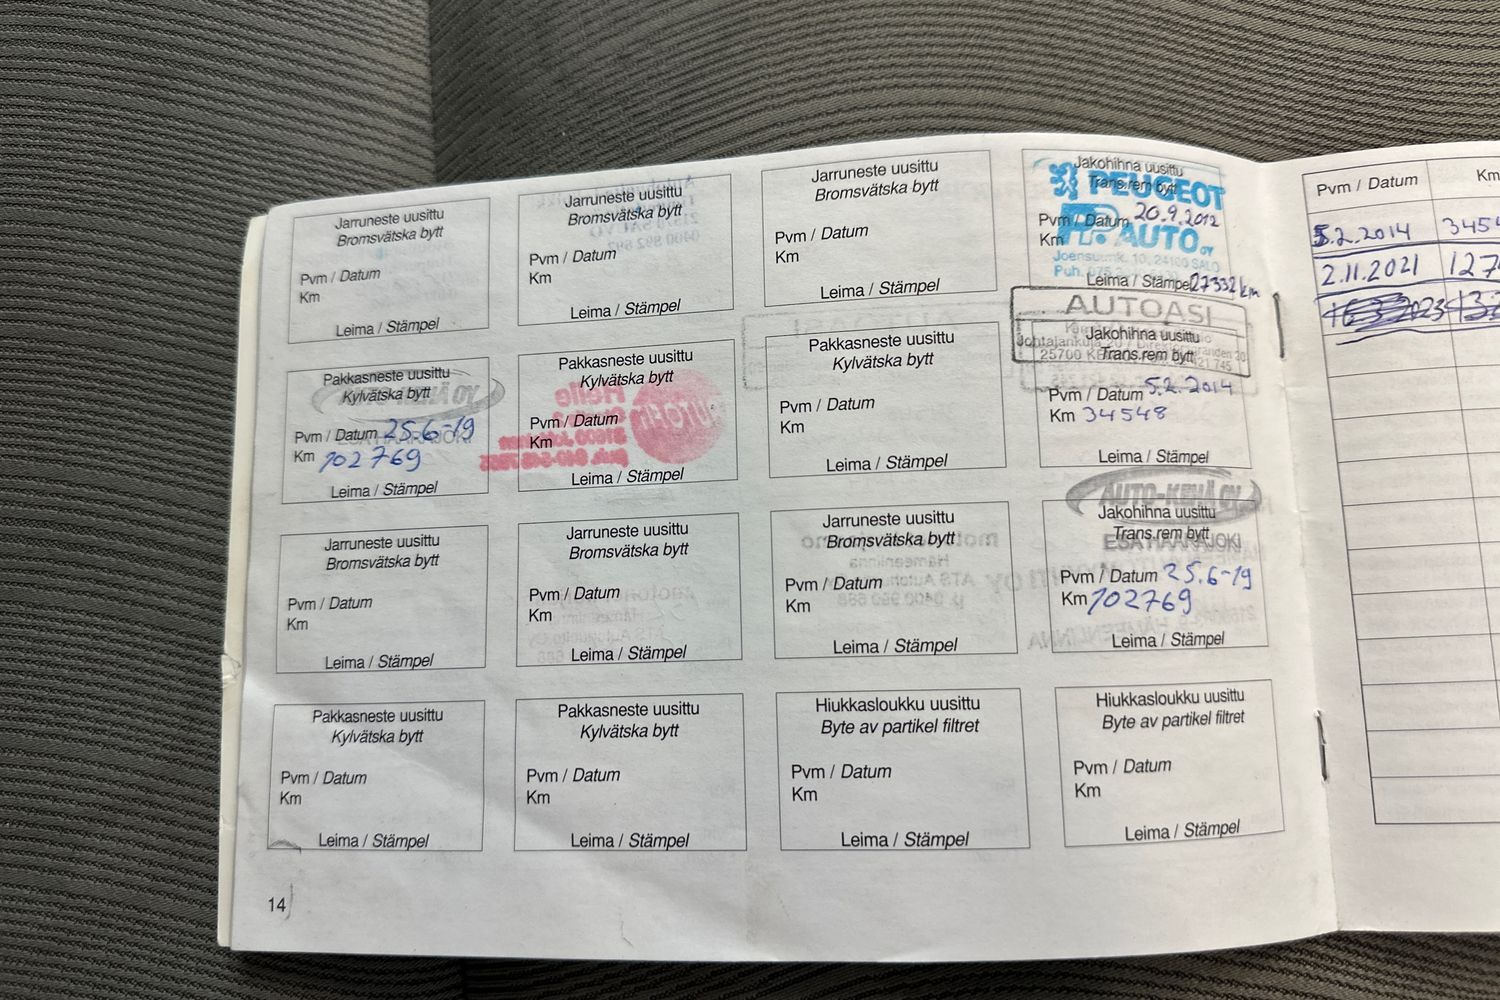 Jarruneste uusittu
Bromsvätska bytt
Pvm / Datum
Km
Leima / Stämpel
Jarruneste uusittu
Bromsvätska bytt
Pvm / Datum
Km
Leima / Stämpel
Jarruneste uusittu
Bromsvätska bytt
Pvm / Datum
Km
Leima / Stämpel
Jakohihna uusittu
Trans.rem bytt
PEUGEOT
Pvm / Datum 20.9.2012
Km
AUTO OY
Joensuunk. 10, 24100 SALO
Puh.
Leima / Stämpel 27332 km
Pakkasneste uusittu
Kylvätska bytt
Pvm / Datum 25.6-19
Km 102769
Leima / Stämpel
Pakkasneste uusittu
Kylvätska bytt
Pvm / Datum
Km
Leima / Stämpel
Pakkasneste uusittu
Kylvätska bytt
Pvm / Datum
Km
Leima / Stämpel
AUTOASI
Jakohihna uusittu
Trans.rem bytt
25700
Pvm / Datum 5.2.2014
Km 34548
Leima / Stämpel
Jarruneste uusittu
Bromsvätska bytt
Pvm / Datum
Km
Leima / Stämpel
Jarruneste uusittu
Bromsvätska bytt
Pvm / Datum
Km
Leima / Stämpel
Jarruneste uusittu
Bromsvätska bytt
Pvm / Datum
Km
Leima / Stämpel
AUTO-KEHÄ OY
Jakohihna uusittu
Trans.rem bytt
ESA HAARAJOKI
Pvm / Datum 25.6-19
Km 102769
Leima / Stämpel
Pakkasneste uusittu
Kylvätska bytt
Pvm / Datum
Km
Leima / Stämpel
Pakkasneste uusittu
Kylvätska bytt
Pvm / Datum
Km
Leima / Stämpel
Hiukkasloukku uusittu
Byte av partikel filtret
Pvm / Datum
Km
Leima / Stämpel
Hiukkasloukku uusittu
Byte av partikel filtret
Pvm / Datum
Km
Leima / Stämpel
14
Pvm / Datum Km
5.2.2014 345
2.11.2021 127